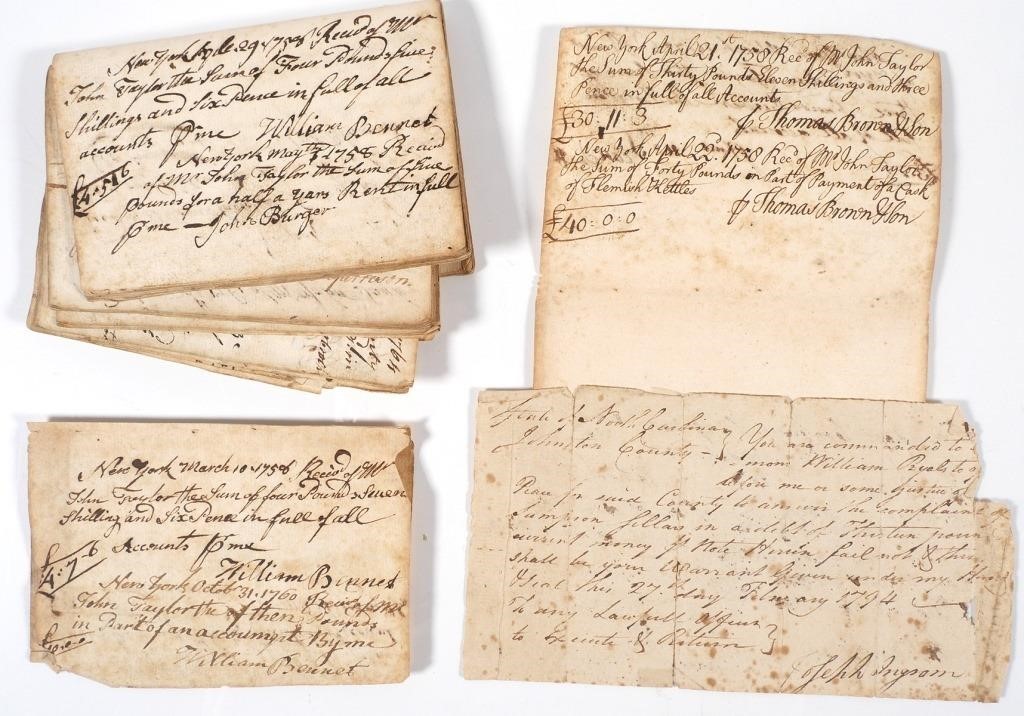 New York 29 1758 Receid of Mr
John Taylor the Sum of Four Pounds five
Shillings and Six Pence in full of all
accounts Pme William Bennet
£4:5:6
New York May 1758 Receid
of Mr John Taylor the Sum of five
pounds for a half a years Rent in full
Pme John Burger
New York April 21st 1758 Rec'd of Mr John Taylor
the Sum of Thirty Pounds Eleven Shillings and three
Pence in full of all Accounts
£30:11:3 P Thomas Brown & Son
New York April 22d 1758 Rec'd of Mr John Taylor
the Sum of Forty Pounds on Part of Payment of a Cask
of Flemish Kettles
£40:0:0 P Thomas Brown & Son
New York March 10 1758 Receid of Mr
John Taylor the Sum of four Pounds Seven
Shilling and Six Pence in full of all
£4:7:6 Accounts Pme
William Bennet
New York Octob 31, 1760 Receid of Mr
John Taylor the of then Pounds
in Part of an accoumpt By me
William Bennet
State of North Carolina } You are commanded to
Johnston County } William
before me or some Justice of
Peace for said County to answer the complaint
Sampson Sellars in a debt of Thirteen pounds
current money Note Herein fail not & this
shall be your Warrant Given under my Hand
& Seal this 27 day February 1794
To any Lawfull officer
to Execute & Return }
Joseph Ingram